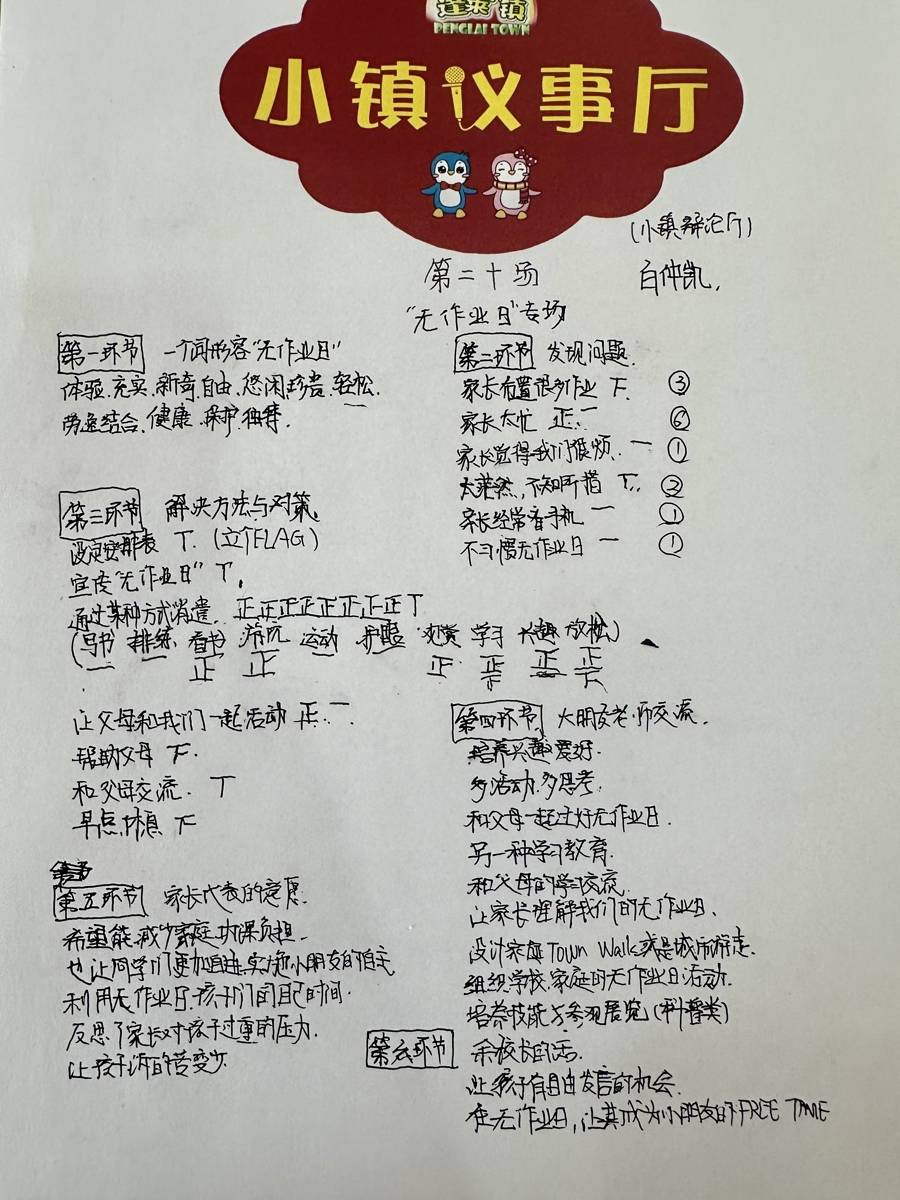 蓬莱镇
PENGLAI TOWN
小镇议事厅
(小镇辩论厅)
第二十场
白仲凯.
"无作业日"专场
第一环节 一个词形容"无作业日"
体验.充实.新奇.自由.悠闲.珍贵.轻松.
劳逸结合.健康.保护.独特.
第二环节 发现问题.
家长布置很多作业 下 ③
家长太忙 正一 ⑥
家长觉得我们很烦. 一 ①
太茫然,不知所措 丅 ②
家长经常看手机 一 ①
不习惯无作业日 一 ①
第三环节 解决方法与对策.
设定安排表 丅. (立个FLAG)
宣传"无作业日" 丅.
通过某种方式消遣. 正正正正正正正正丅
(写书 排练 看书 游玩 运动 护眼 欣赏 学习 兴趣 放松)
一 一 正 正 一 正 正下 正 正下
让父母和我们一起活动 正一
帮助父母 下.
和父母交流. 丅
早点休息 下
第四环节 大朋友老师交流.
培养兴趣爱好.
多活动.多思考.
和父母一起过好无作业日.
另一种学习教育.
和父母的学习交流.
让家长理解我们的无作业日.
设计亲子Town Walk或是城市游走.
组织学校.家庭的无作业日活动.
培养技能与参观展览(科普类)
第五环节 家长代表的意愿.
希望能减少家庭功课负担.
也让同学们更加自主.实现小朋友的自主
利用无作业日.孩子们间自己时间.
反思了家长对孩子过重的压力.
让孩子诉的苦变少.
第六环节 余校长的话.
让孩子有自由发言的机会.
在无作业日,让其成为小朋友的FREE TIME